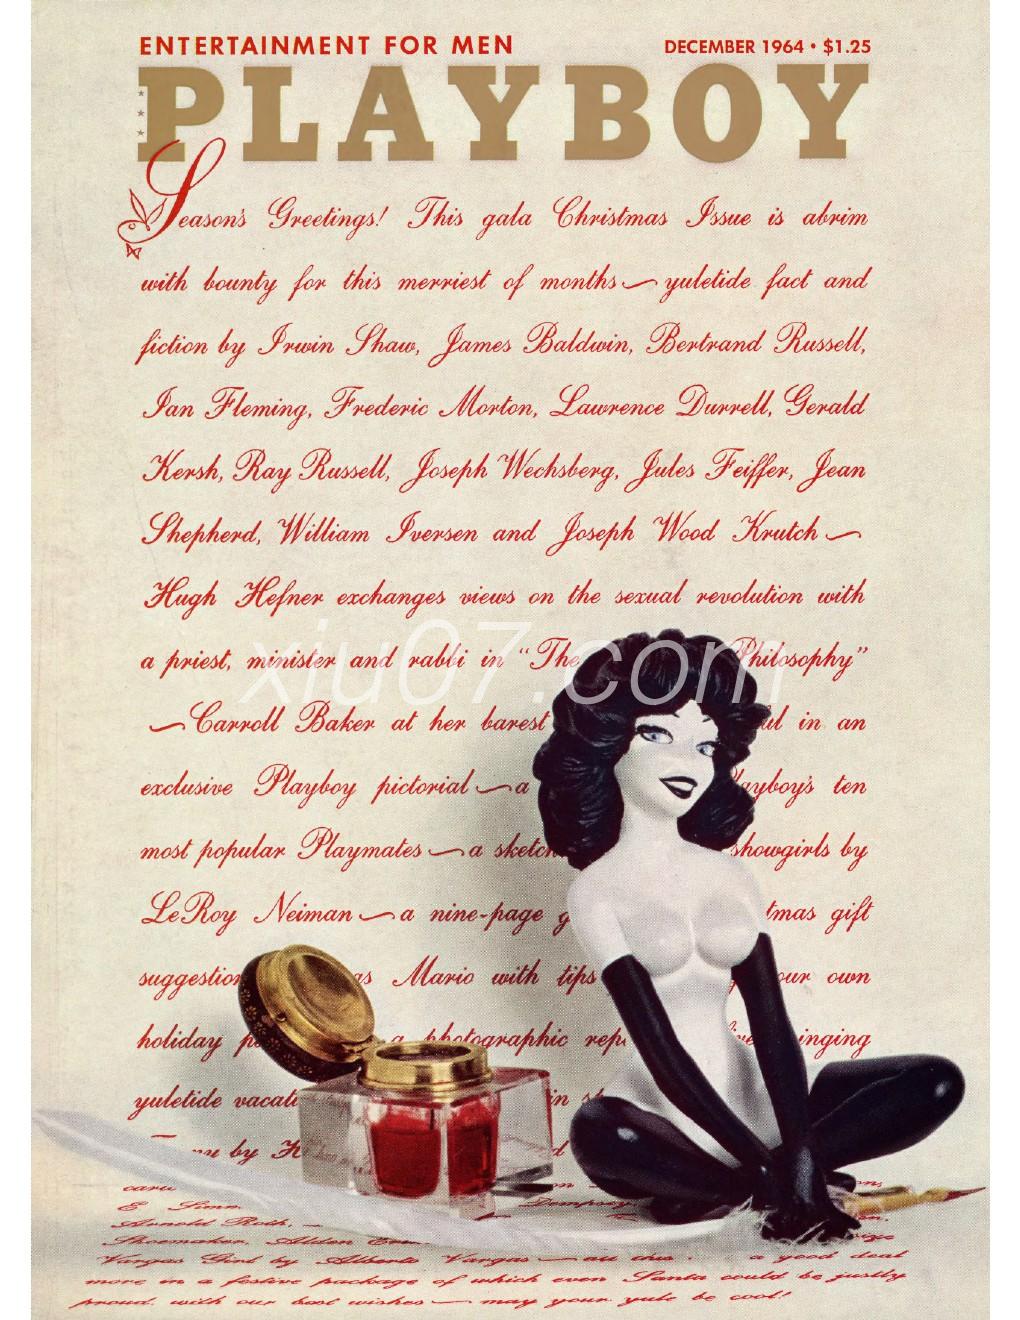 ENTERTAINMENT FOR MEN
DECEMBER 1964 • $1.25
PLAYBOY
Season's Greetings! This gala Christmas Issue is abrim
with bounty for this merriest of months—yuletide fact and
fiction by Irwin Shaw, James Baldwin, Bertrand Russell,
Ian Fleming, Frederic Morton, Lawrence Durrell, Gerald
Kersh, Ray Russell, Joseph Wechsberg, Jules Feiffer, Jean
Shepherd, William Iversen and Joseph Wood Krutch—
Hugh Hefner exchanges views on the sexual revolution with
a priest, minister and rabbi in "The Philosophy"
xiu07.com
—Carroll Baker at her barest in an
exclusive Playboy pictorial—a layboy's ten
most popular Playmates—a sketch showgirls by
LeRoy Neiman—a nine-page tmas gift
suggestion as Mario with tips our own
holiday a photographic rep inging
yuletide vacati in
by
Dempsey
Arnold Roth, —
Shoemaker, Alden
Vargas Girl by Alberto Vargas—all this a good deal
more in a festive package of which even Santa could be justly
proud. with our best wishes—may your yule be cool!